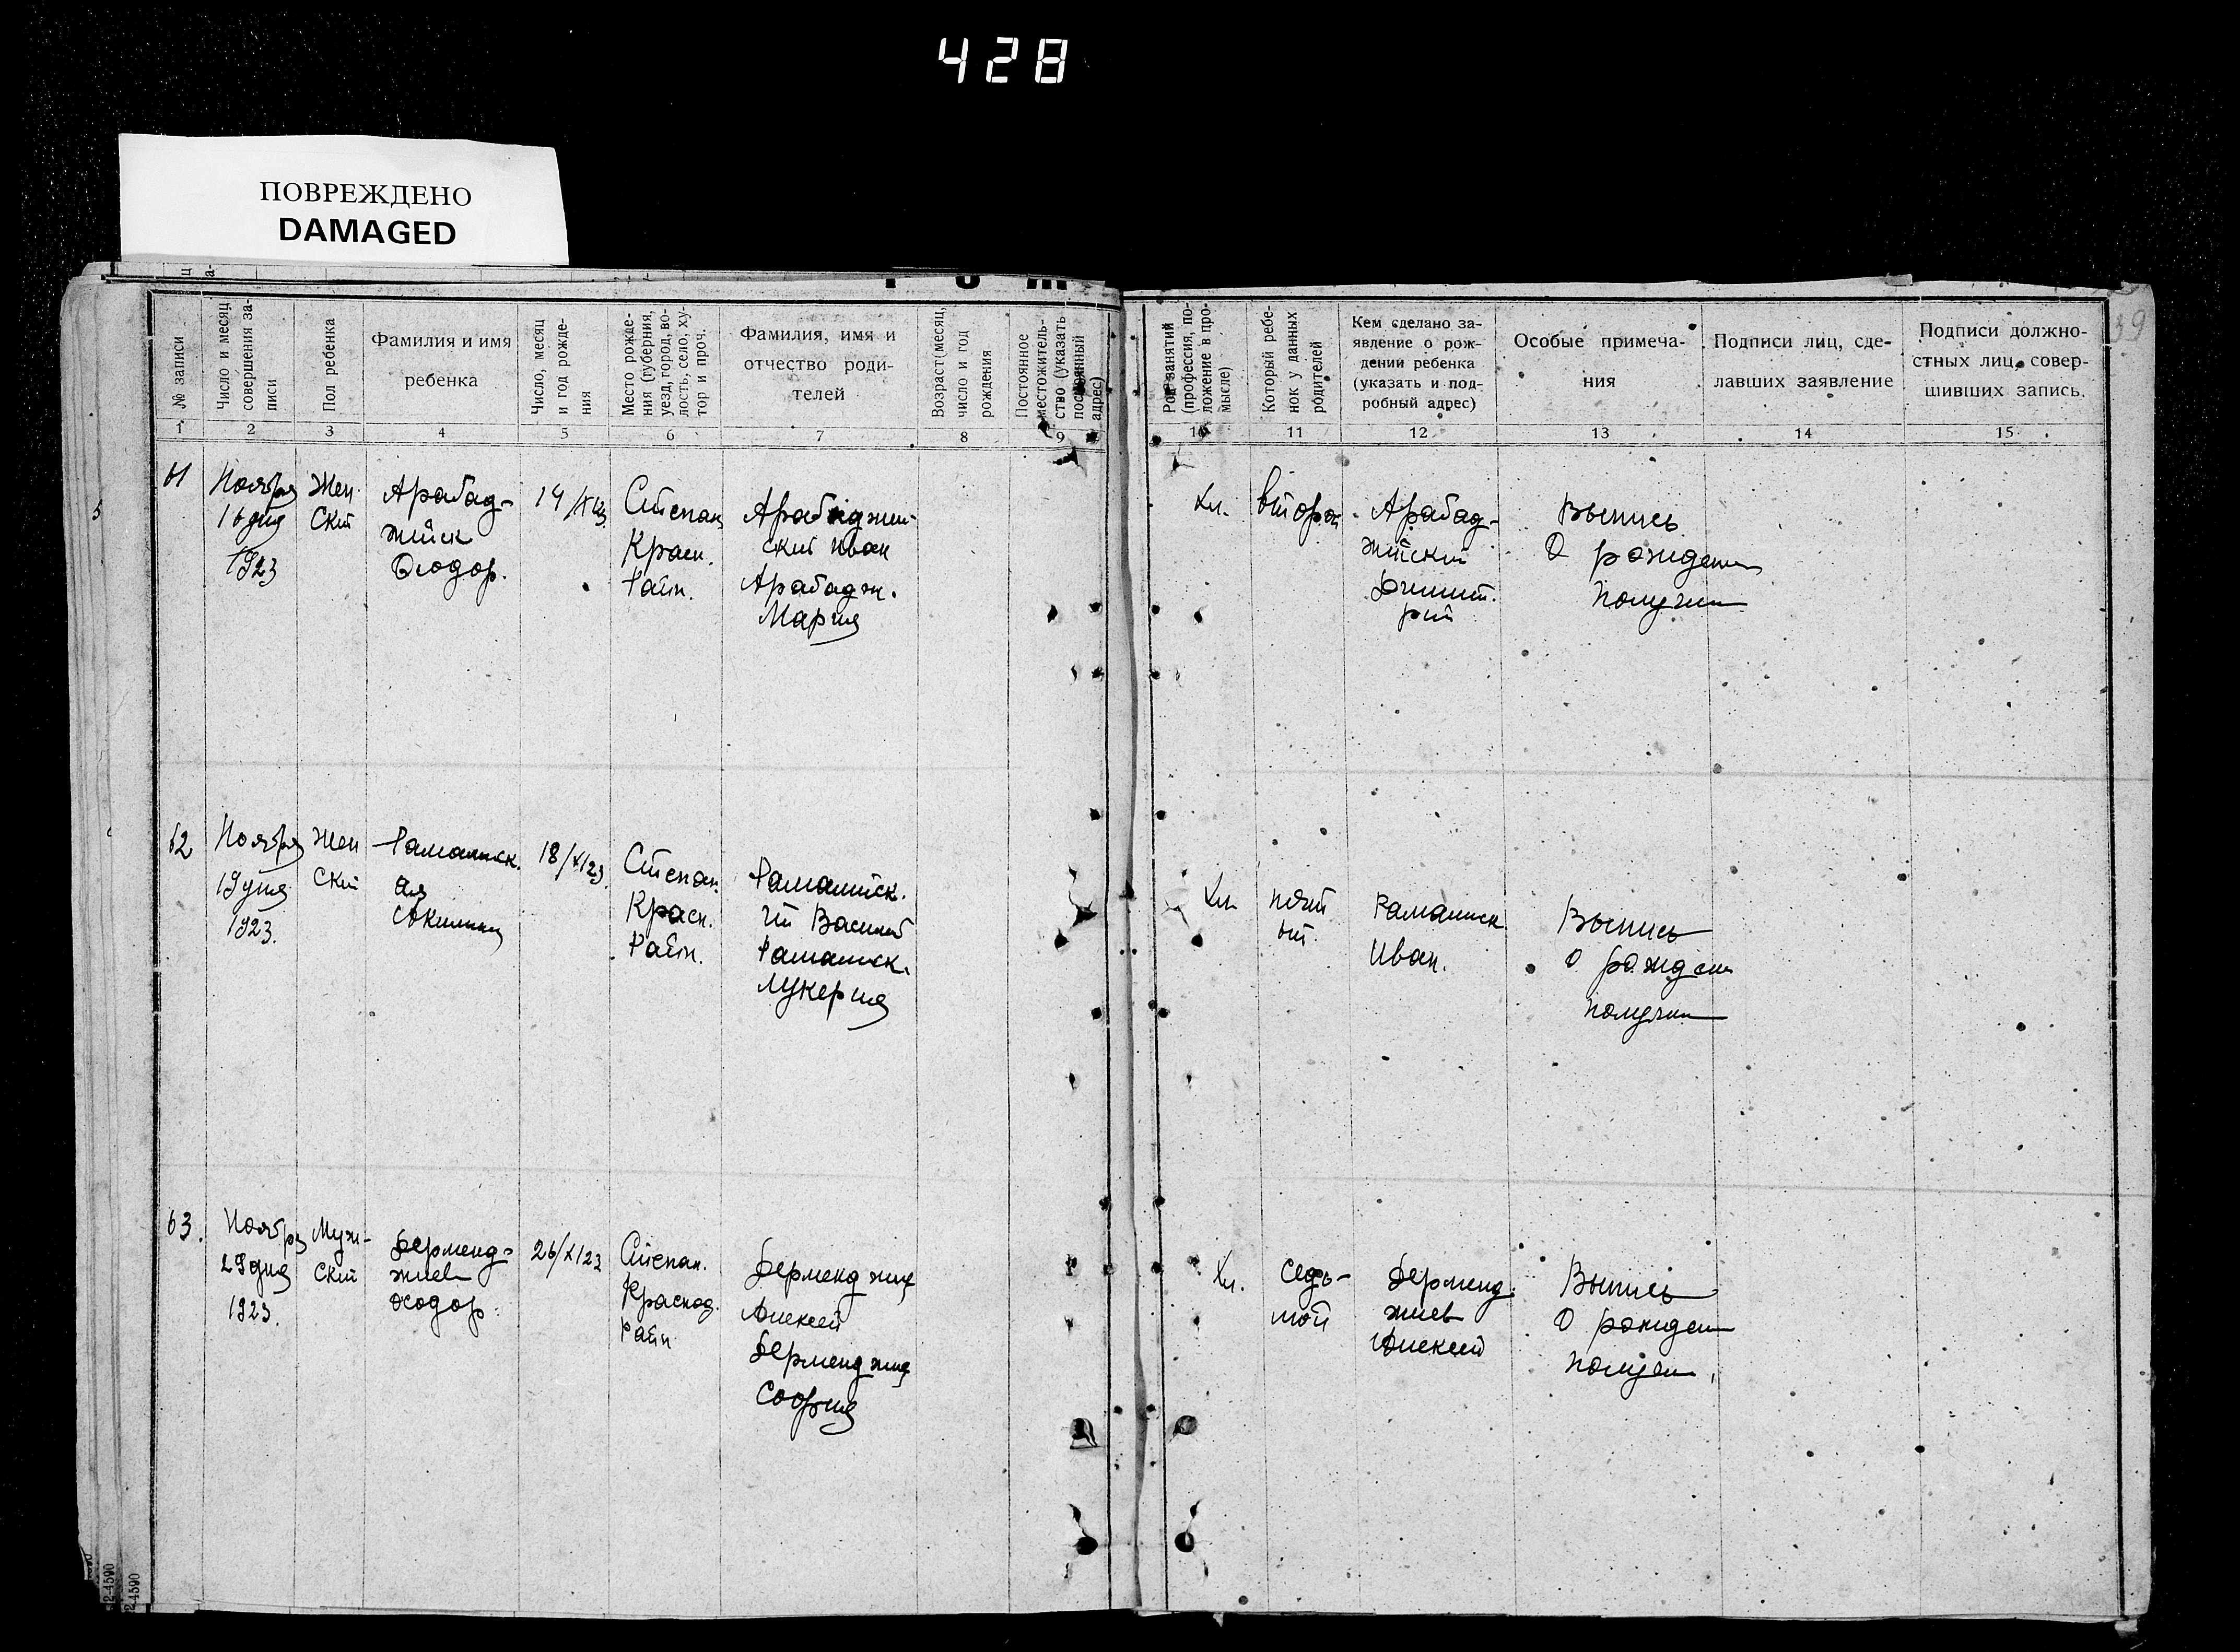 428
ПОВРЕЖДЕНО
DAMAGED
№ записи
Число и месяц совершения записи
Пол ребенка
Фамилия и имя
ребенка
Число, месяц и год рождения
Место рождения (губерния, уезд, город, волость, село, хутор и проч.
Фамилия, имя и
отчество роди-
телей
Возраст (месяц, число и год рождения
Постоянное местожительство (указать постоянный адрес)
Род занятий (профессия, положение в промысле)
Который ребенок у данных родителей
Кем сделано за-
явление о рож-
дении ребенка
(указать и под-
робный адрес)
Особые примеча-
ния
Подписи лиц, сде-
лавших заявление
Подписи должно-
стных лиц, совер-
шивших запись.
39
1 2 3 4 5 6 7 8 9 10 11 12 13 14 15
61
Ноября
16 дня
1923
Жен
ский
Арабад-
жийск
Федор.
14/XI23
Степан
Красн.
Район.
Арабаджий-
ский Иван
Арабадж.
Мария
Хл.
второй
Арабад-
жийский
Димит.
рий
Выпись
О рождении
получил
62
Ноября
19 дня
1923.
Жен
ский
Рамалийск.
ая
Акилина
18/XI23.
Степан.
Красн.
Район.
Рамалийск.
ий Василий
Рамалийск.
Лукерия
Хл.
пят
ый
Рамалийск
Иван.
Выпись
О рождении
получил
63.
Ноября
29 дня
1923.
Муж-
ский
Дерменд-
жиев
Федор.
26/XI23
Степан.
Краснод.
Район
Дерменджиев
Алексей
Дерменджиев
София
Хл.
седь-
мой
Дерменд.
жиев
Алексей
Выпись
О рождении
получил
2-4590
2-4590